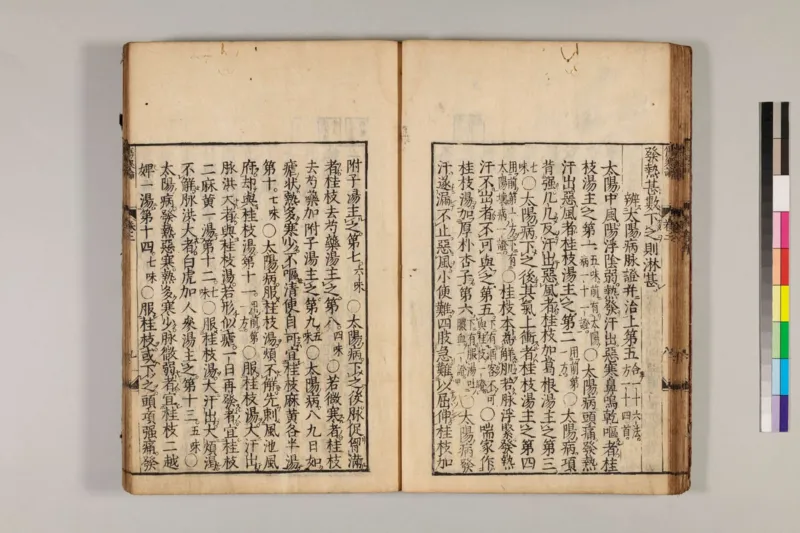 發熱甚數下之則淋甚
辨太陽病脉證并治上第五 合一十六法 方一十四首
太陽中風陽浮陰弱熱發汗出惡寒鼻鳴乾嘔者桂
枝湯主之第一 五味前有太陽病一十一證 ○太陽病頭痛發熱
汗出惡風者桂枝湯主之第二 用前第一方 ○太陽病項
背强几几反汗出惡風者桂枝加葛根湯主之第三
七味 ○太陽病下之後其氣上衝者桂枝湯主之第四
用前第一方下有太陽壞病一證 ○桂枝本爲解肌若脉浮緊發熱
汗不出者不可與之第五 下有酒客不可與桂枝一證 ○喘家作
桂枝湯加厚朴杏子第六 下有服湯吐膿血一證 ○太陽病發
汗遂漏不止惡風小便難四肢急難以屈伸桂枝加
附子湯主之第七 六味 ○太陽病下之後脉促胷滿
者桂枝去芍藥湯主之第八 四味 ○若微寒者桂枝
去芍藥加附子湯主之第九 五味 ○太陽病八九日如
瘧狀熱多寒少不嘔清便自可宜桂枝麻黄各半湯
第十 七味 ○太陽病服桂枝湯煩不解先刺風池風
府却與桂枝湯第十一 用前第一方 ○服桂枝湯大汗出
脉洪大者與桂枝湯若形似瘧一日再發者宜桂枝
二麻黄一湯第十二 七味 ○服桂枝湯大汗出大煩渴
不解脉洪大者白虎加人參湯主之第十三 五味 ○
太陽病發熱惡寒熱多寒少脉微弱者宜桂枝二越
婢一湯第十四 七味 ○服桂枝或下之頭項强痛發